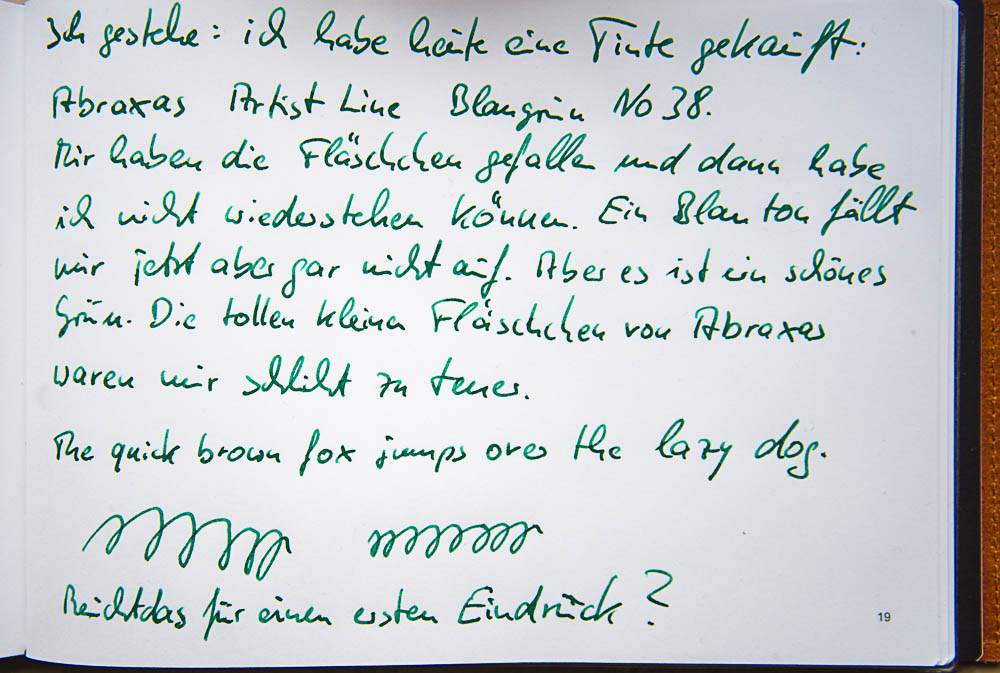 Ich gestehe: ich habe heute eine Tinte gekauft:
Abraxas Artist Line Blaugrün No 38.
Mir haben die Fläschchen gefallen und dann habe
ich nicht wiederstehen können. Ein Blau ton fällt
mir jetzt aber gar nicht auf. Aber es ist ein schönes
Grün. Die tollen kleinen Fläschchen von Abraxas
waren mir schlicht zu teuer.
The quick brown fox jumps over the lazy dog.
Reicht das für einen ersten Eindrück?
19